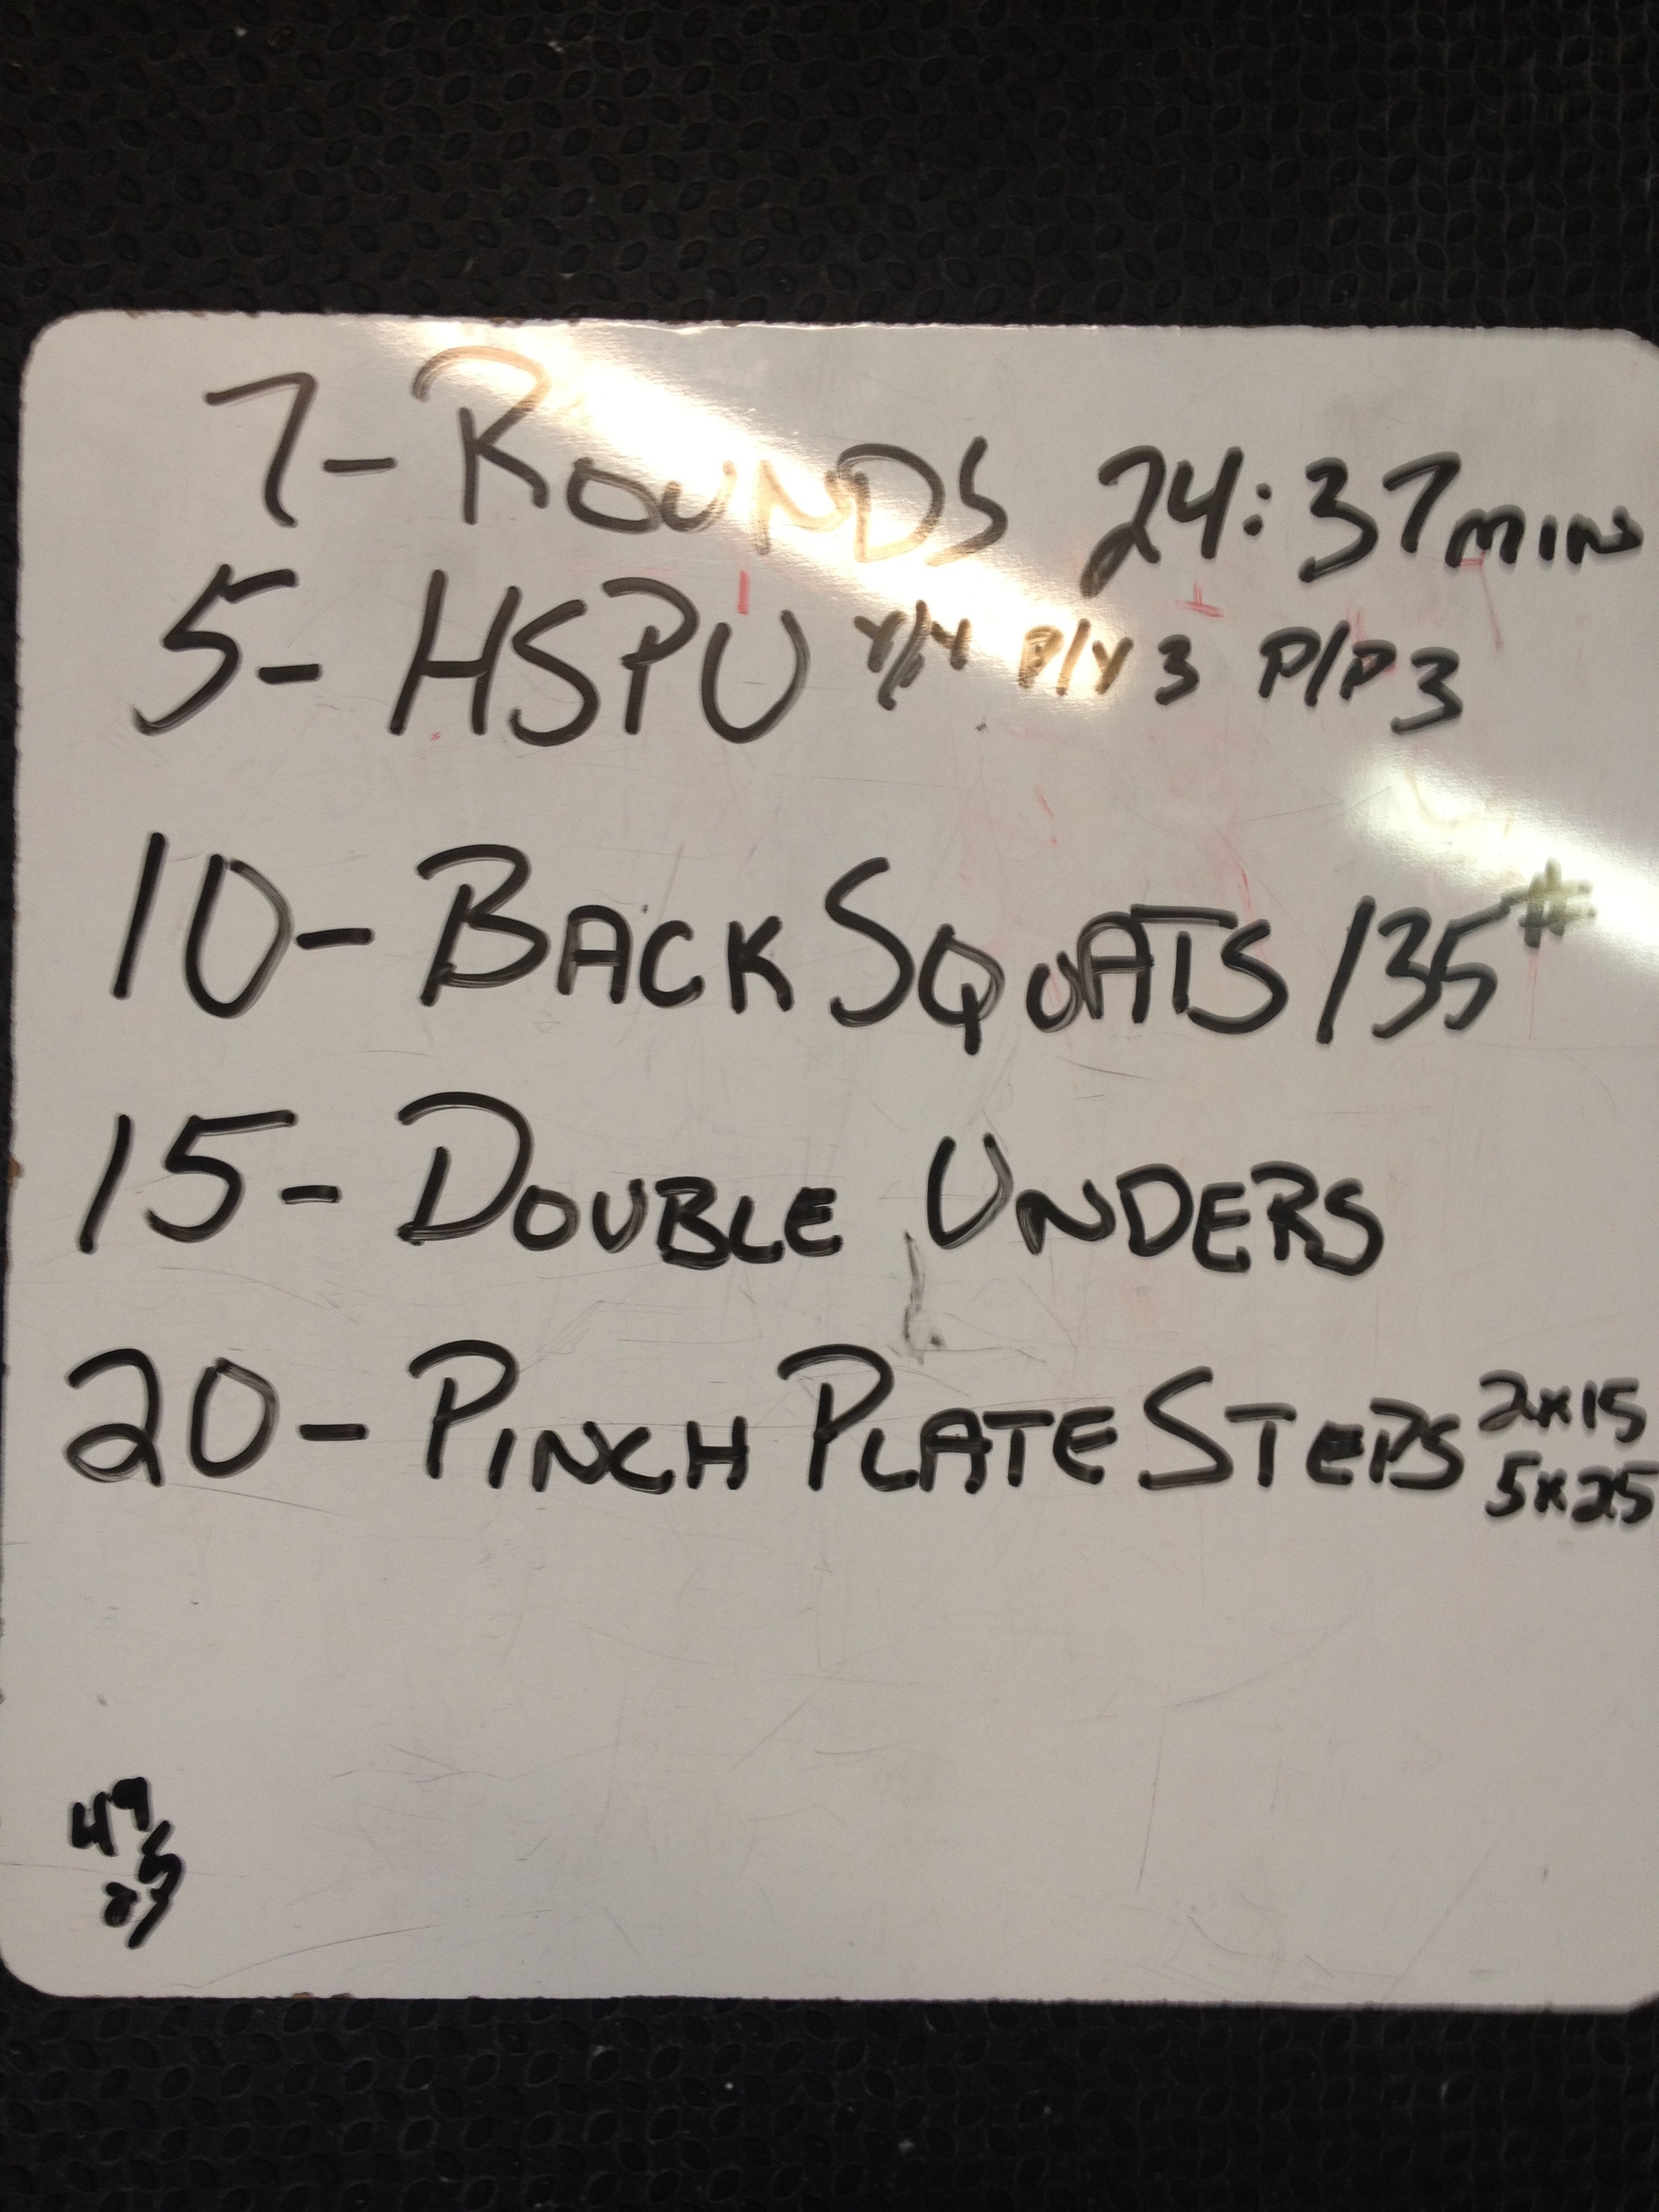 7- ROUNDS 24:37 MIN
5- HSPU Y/Y P/Y 3 P/P 3
10- BACK SQUATS 135#
15- DOUBLE UNDERS
20- PINCH PLATE STEPS 2x15
5x25
49